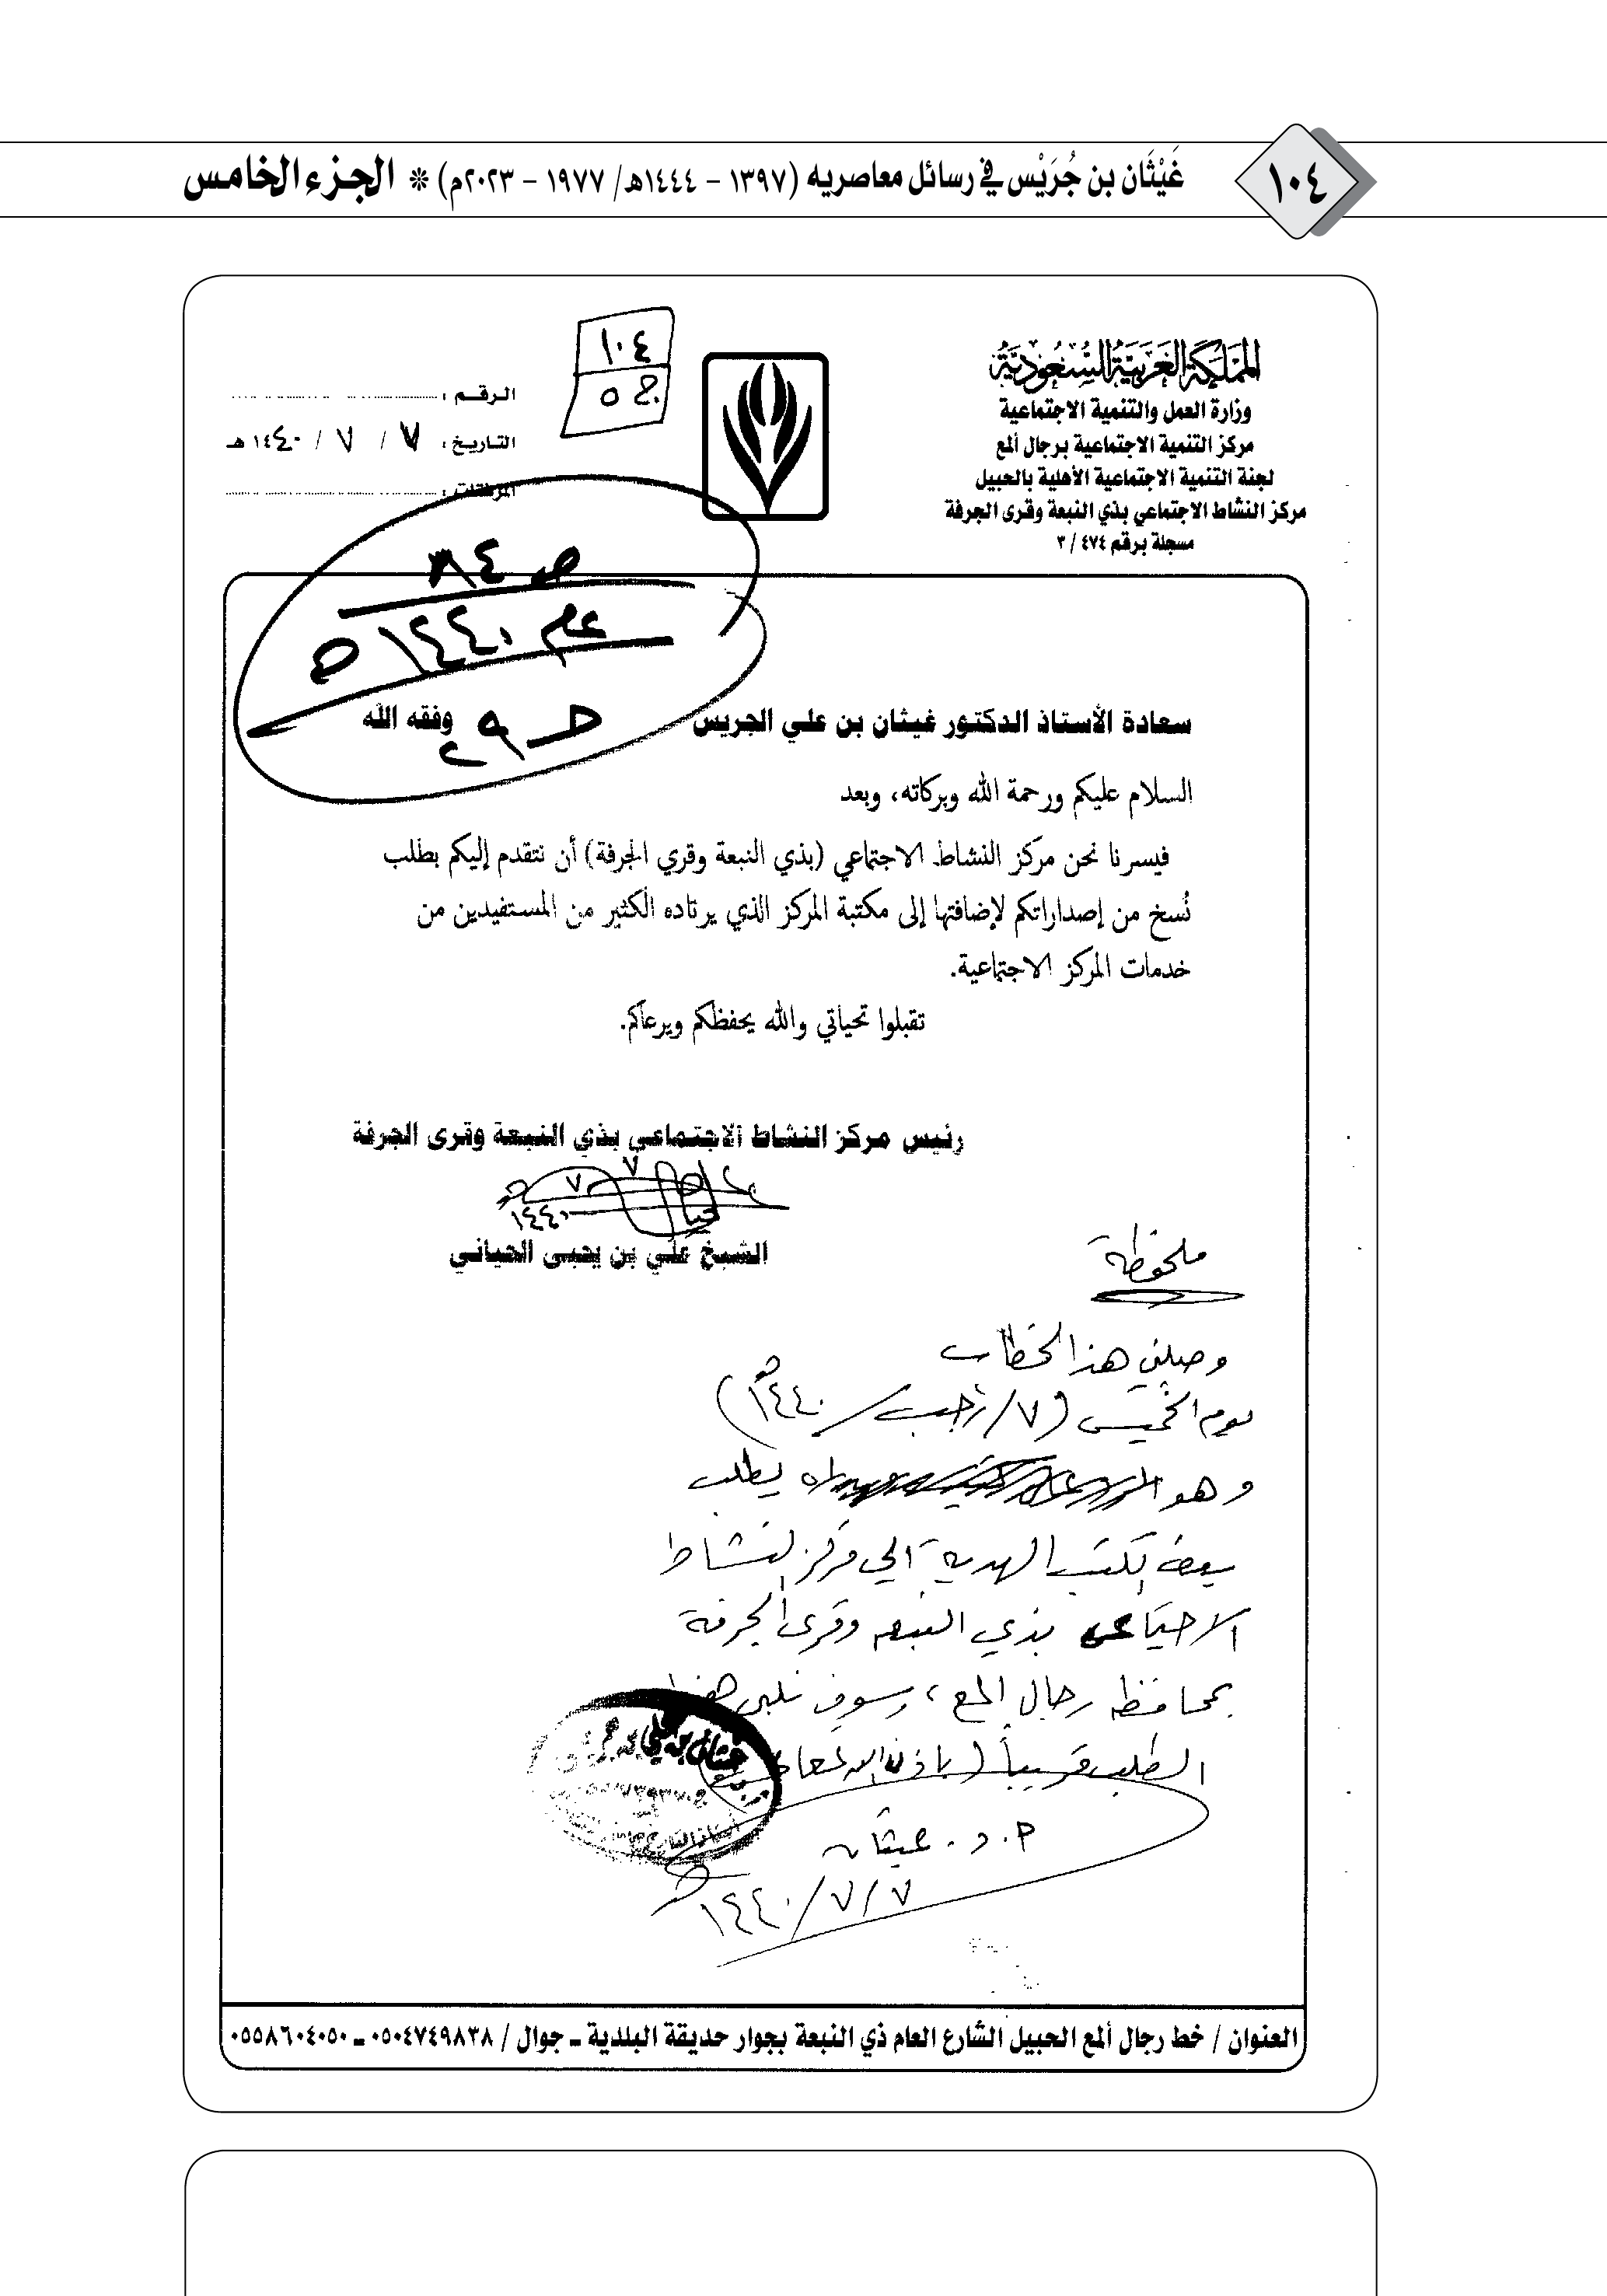 ١٠٤
غَيْثَان بن جُرَيْس في رسائل معاصريه (١٣٩٧ - ١٤٤٤هـ/ ١٩٧٧ - ٢٠٢٣م) * الجزء الخامس
المملكة العربية السعودية
وزارة العمل والتنمية الاجتماعية
مركز التنمية الاجتماعية برجال ألمع
لجنة التنمية الاجتماعية الأهلية بالحبيل
مركز النشاط الاجتماعي بذي النبعة وقرى الجرفة
مسجلة برقم ٤٧٤ / ٣
١٠٤
ج ٥
الرقم :
التاريخ : ٧ / ٧ / ١٤٤٠ هـ
المرفقات :
عام ١٤٤٠ هـ
سعادة الأستاذ الدكتور غيثان بن علي الجريس وفقه الله
السلام عليكم ورحمة الله وبركاته، وبعد
فيسرنا نحن مركز النشاط الاجتماعي (بذي النبعة وقري الجرفة) أن نتقدم إليكم بطلب
نُسخ من إصداراتكم لإضافتها إلى مكتبة المركز الذي يرتاده الكثير من المستفيدين من
خدمات المركز الاجتماعية.
تقبلوا تحياتي والله يحفظكم ويرعاكم.
رئيس مركز النشاط الاجتماعي بذي النبعة وقرى الجرفة
٧ ٧
١٤٤٠
الشيخ علي بن يحيى الحياني
ملحوظة
وصلني هذا الخطاب
يوم الخميس (٧/رجب/١٤٤٠هـ)
وهو يطلب
بعض الكتب الهدية إلى مركز النشاط
الاجتماعي بذي النبعه وقرى الجرفة
بمحافظة رجال المع، وسوف نلبي هذا
الطلب قريباً (بإذن الله تعالى)
أ. د. غيثان
٧/٧/١٤٤٠هـ
العنوان / خط رجال ألمع الحبيل الشارع العام ذي النبعة بجوار حديقة البلدية ـ جوال / ٠٥٠٤٧٤٩٨٣٨ ـ ٠٥٥٨٦٠٤٠٥٠